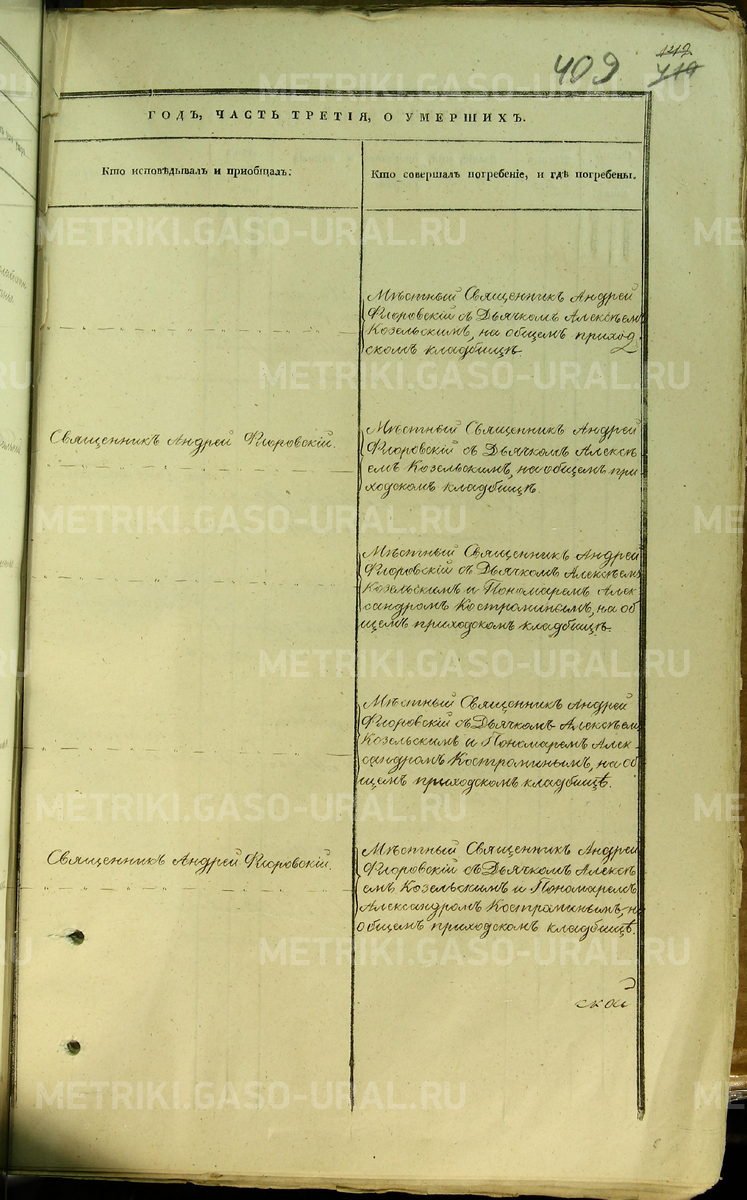 409
ГОДЪ, ЧАСТЬ ТРЕТІЯ, О УМЕРШИХЪ.
Кто исповѣдывалъ и приобщалъ.
Кто совершалъ погребеніе, и гдѣ погребены.
Мѣстный Священникъ Андрей
Флоровскій съ Дьячкомъ Алексѣемъ
Козельскимъ, на общемъ приход-
скомъ кладбищѣ.
Священникъ Андрей Флоровскій.
Мѣстный Священникъ Андрей
Флоровскій съ Дьячкомъ Алексѣ
емъ Козельскимъ, на общемъ при
ходскомъ кладбищѣ.
Мѣстный Священникъ Андрей
Флоровскій съ Дьячкомъ Алексѣемъ
Козельскимъ и Пономаремъ Алек
сандромъ Костроминымъ, на об
щемъ приходскомъ кладбищѣ.
Мѣстный Священникъ Андрей
Флоровскій съ Дьячкомъ Алексѣемъ
Козельскимъ и Пономаремъ Алек
сандромъ Костроминымъ, на об
щемъ приходскомъ кладбищѣ.
Священникъ Андрей Флоровскій.
Мѣстный Священникъ Андрей
Флоровскій съ Дьячкомъ Алексѣ
емъ Козельскимъ и Пономаремъ
Александромъ Костроминымъ, н
общемъ приходскомъ кладбищѣ.
ской
METRIKI.GASO-URAL.RU